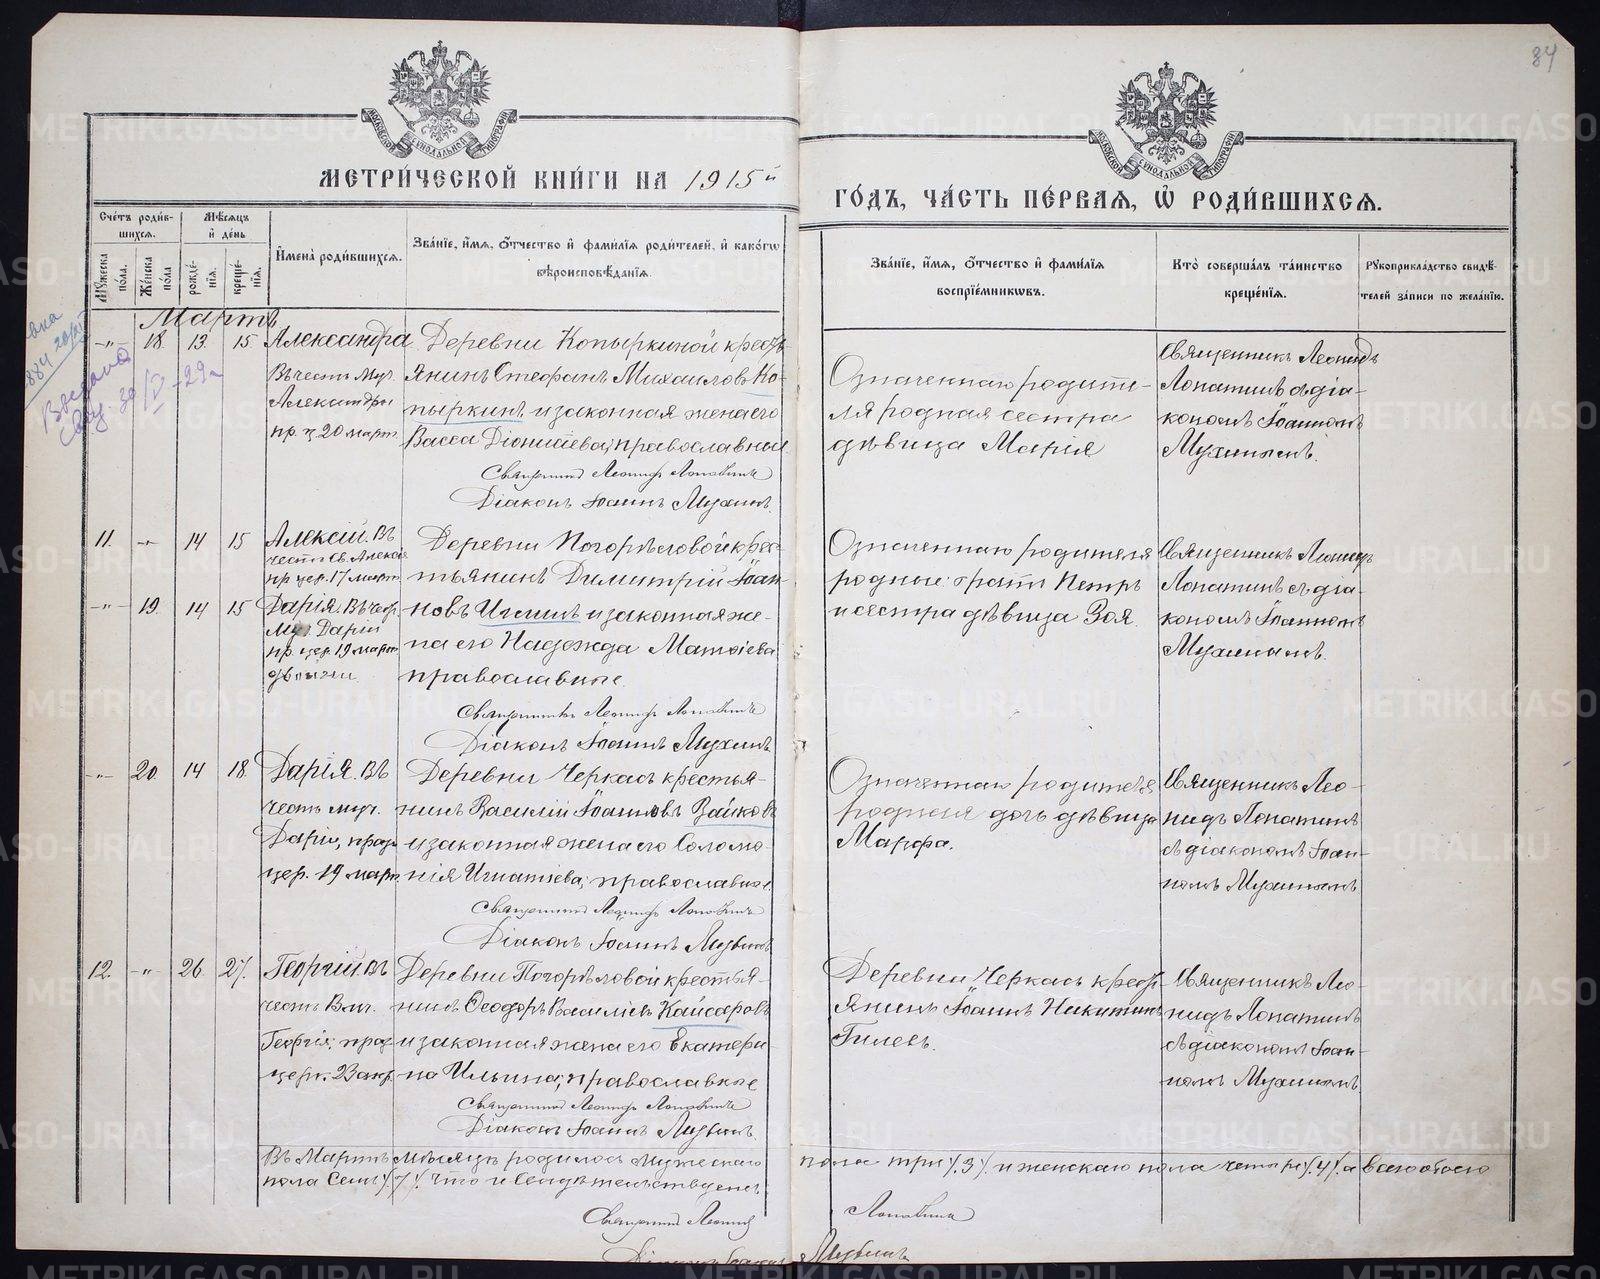 84
МЕТРИ́ЧЕСКОЙ КНИ́ГИ НА 1915й
ГО́ДЪ, ЧА́СТЬ ПЕ́РВАѦ, Ѽ РОДИ́ВШИХСѦ.
Сче́тъ роди́в-
шихсѧ.
Мѣ́сѧцъ
и҆ де́нь
Мꙋ́жеска
по́ла.
Же́нска
по́ла
рожде́-
нїѧ.
креще́-
нїѧ.
И҆мена̀ роди́вшихсѧ.
Зва́нїе, и҆́мѧ, ѻ҆́тчество и҆ фами́лїѧ роди́телей, и҆ како́гѡ
вѣроисповѣ́данїѧ.
Зва́нїе, и҆́мѧ, ѻ҆́тчество и҆ фами́лїѧ
воспрїе́мникѡвъ.
Кто̀ соверша́лъ та́инство
креще́нїѧ.
Рꙋкоприкла́дство свидѣ́-
телей за́писи по жела́нїю.
Мартъ
-"- 18. 13. 15 Александра
Въ честь муч.
Александры
пр. ц 20 март.
Деревни Копыркиной кресть
янинъ Стефанъ Михаиловъ Ко-
пыркинъ и законная жена его
Васса Діонисіева, православные
Священникъ Леонидъ Лопатинъ
Діаконъ Іоаннъ Мухинъ.
Означеннаго родите-
ля родная сестра
дѣвица Марія
Священникъ Леонидъ
Лопатинъ съ діа-
кономъ Іоанномъ
Мухинымъ.
11. -"- 14 15 Алексій. Въ
честь Св. Алексія
пр цер. 17 март.
-"- 19. 14 15 Дарія. Въ чес.
Муч. Даріи
пр. цер. 19 март
двойни
Деревни Погорѣловой крес-
тьянинъ Димитрій Іоан-
новъ Игнинъ и законная же-
на его Надежда Матѳіева
православные.
Священникъ Леонидъ Лопатинъ
Діаконъ Іоаннъ Мухинъ
Означеннаго родителя
родные: братъ Петръ
и сестра дѣвица Зоя.
Священникъ Леонидъ
Лопатинъ съ діа-
кономъ Іоанномъ
Мухинымъ.
-"- 20. 14 18. Дарія. Въ
честь муч.
Даріи, праз
цер. 19 март.
Деревни Черкасъ крестья-
нинъ Василій Іоанновъ Зайковъ
и законная жена его Соломо-
нія Игнатіева; православные
Священникъ Леонидъ Лопатинъ
Діаконъ Іоаннъ Мухинъ
Означеннаго родителя
родная дочь дѣвица
Марфа.
Священникъ Лео-
нидъ Лопатинъ
съ діакономъ Іоан-
номъ Мухинымъ
12. -"- 26 27. Георгій въ
честь Вмч.
Георгія, праз
церк. 23 апр.
Деревни Погорѣловой крестья-
нинъ Ѳеодоръ Василіевъ Кайсаровъ
и законная жена его Екатери-
на Ильина; православные
Священникъ Леонидъ Лопатинъ
Діаконъ Іоаннъ Мухинъ.
Деревни Черкасъ кресть-
янинъ Іоаннъ Никитинъ
Гилевъ.
Священникъ Лео-
нидъ Лопатинъ
съ діакономъ Іоан-
номъ Мухинымъ.
Въ Мартѣ мѣсяцѣ родилось мужескаго пола три /.3/. и женскаго пола четыре /.4/. а всего обоего
пола Семь /.7/. что и свидѣтельствуемъ
Священникъ Леонидъ Лопатинъ
Діаконъ Іоаннъ Мухинъ